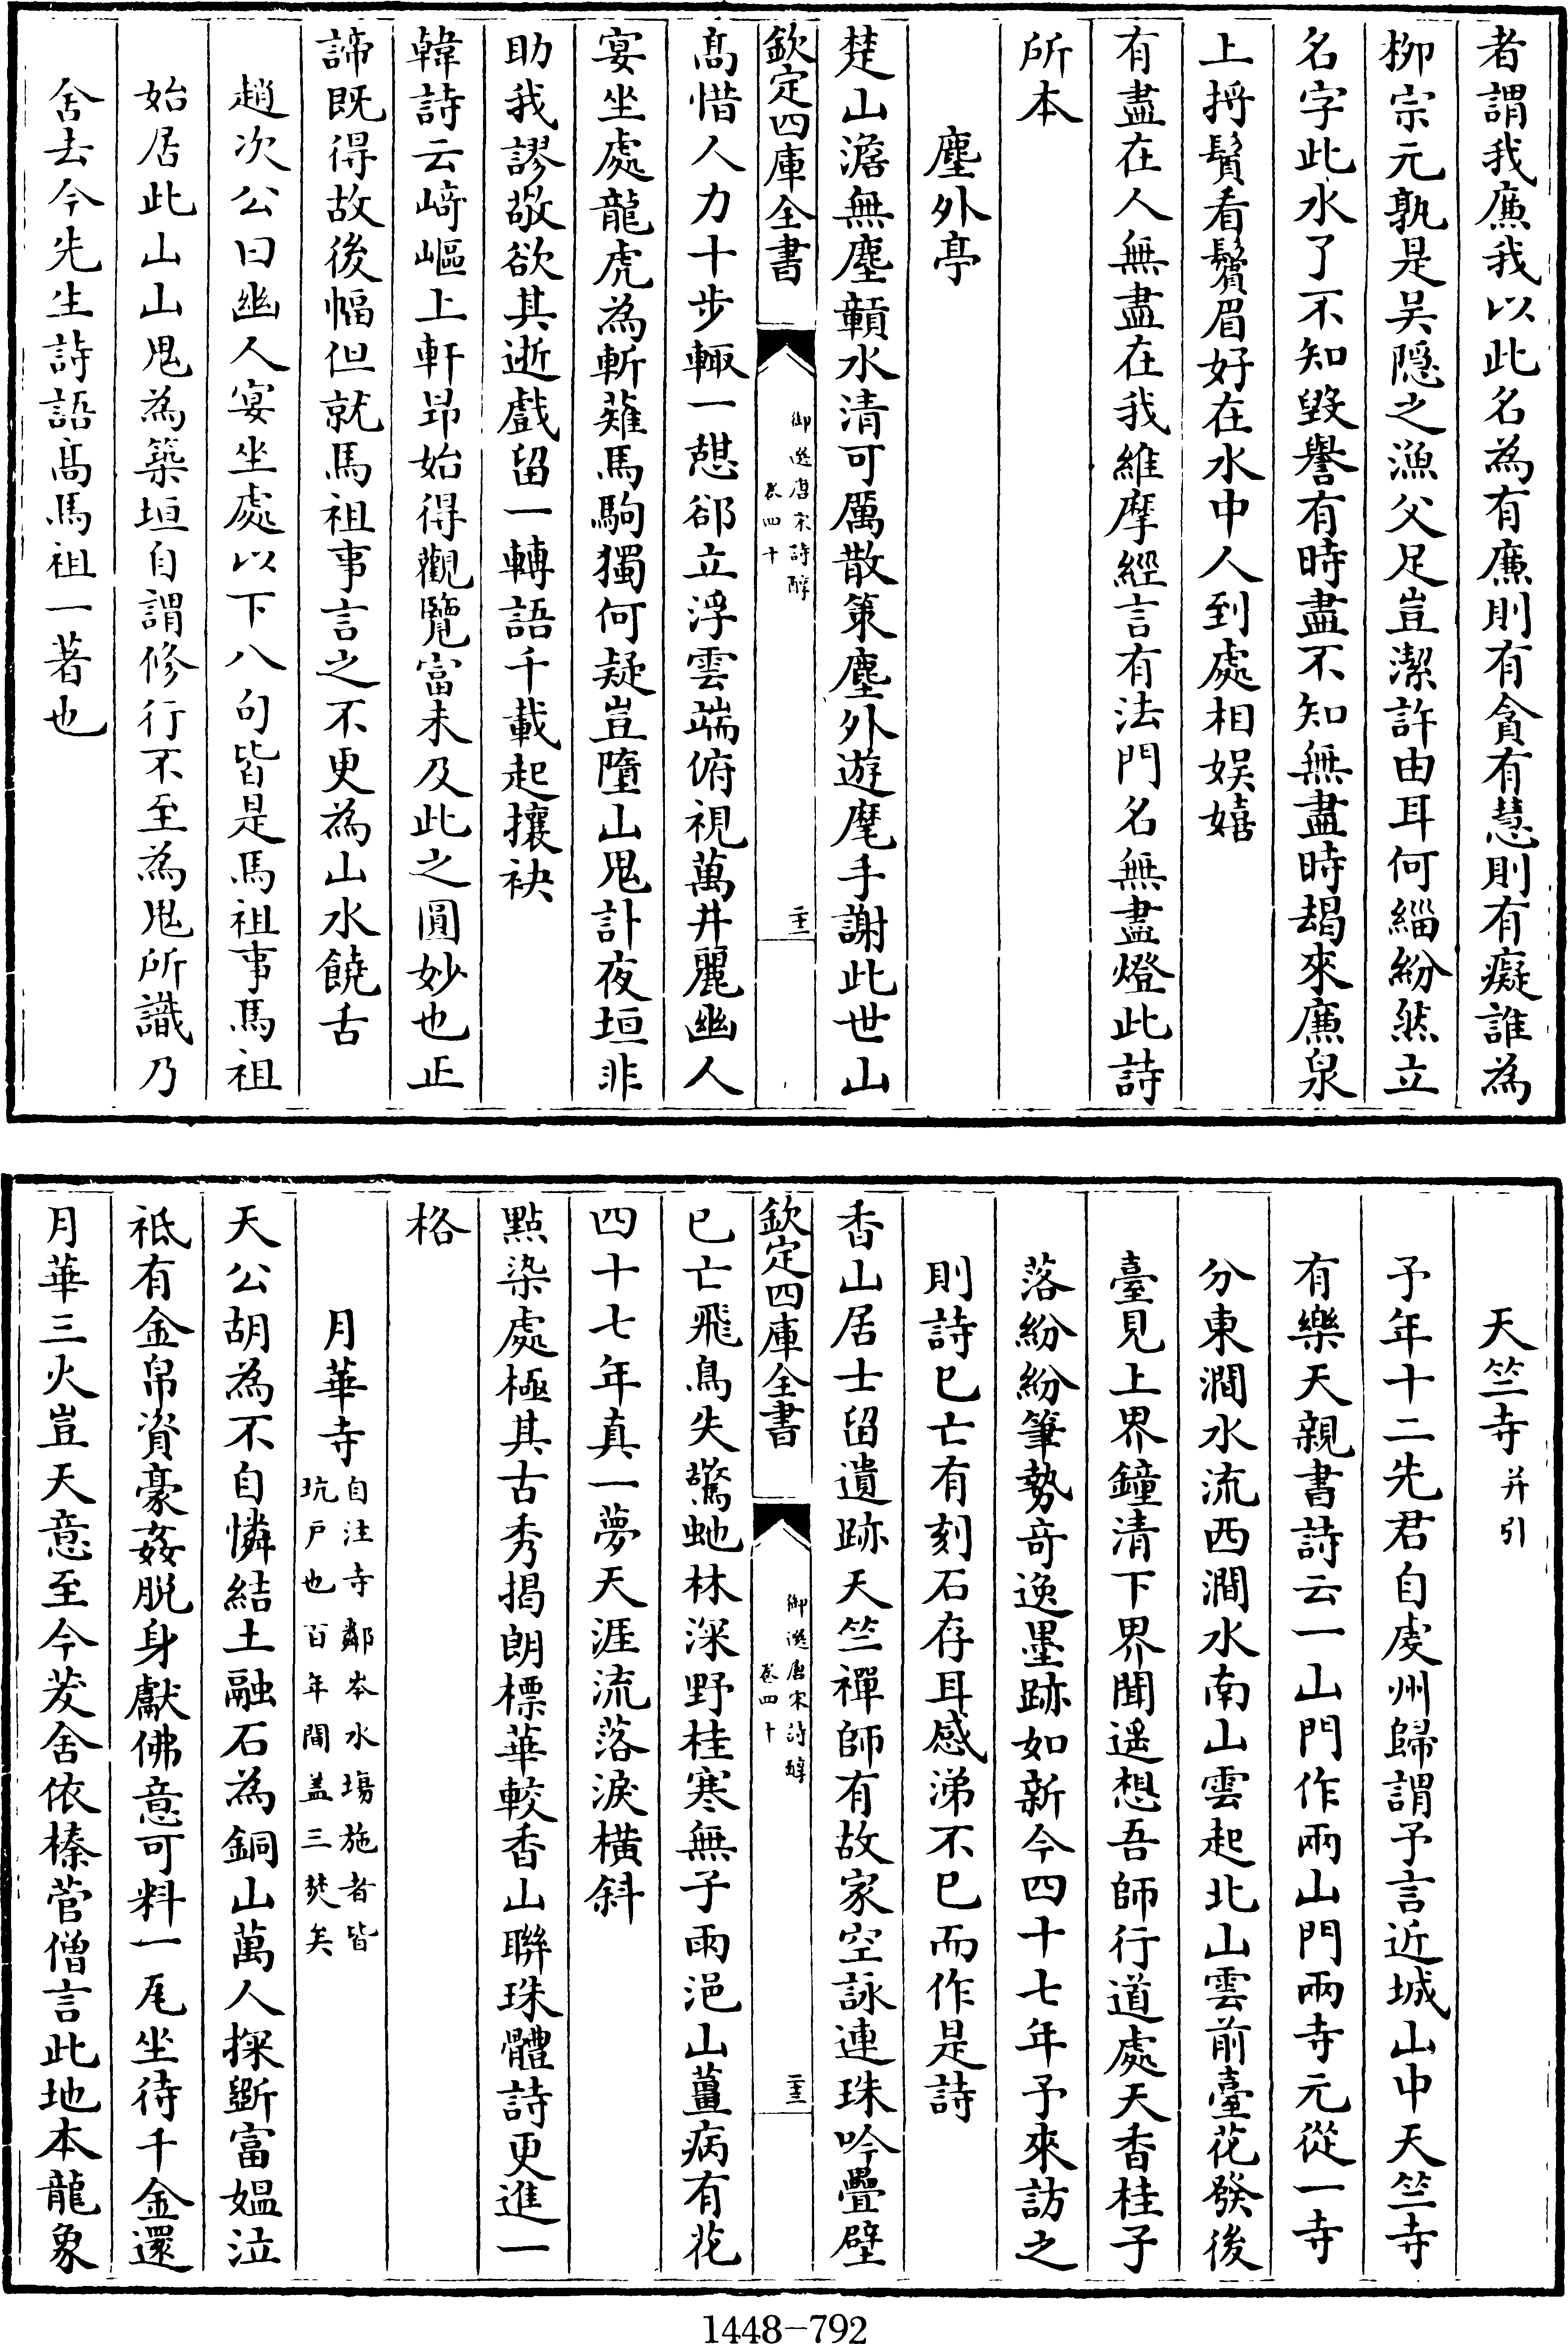 者謂我㢘我以此名為有㢘則有貪有慧則有癡誰為
柳宗元孰是吳隱之漁父足豈潔許由耳何緇紛然立
名字此水了不知毀譽有時盡不知無盡時朅來㢘泉
上捋鬚看鬢眉好在水中人到處相娱嬉
有盡在人無盡在我維摩經言有法門名無盡燈此詩
所本
塵外亭
楚山澹無塵贛水清可厲散策塵外遊麾手謝此世山
欽定四庫全書
御選唐宋詩醇
卷四十
二十二
髙惜人力十步輒一憇郤立浮雲端俯視萬井麗幽人
宴坐處龍虎為斬薙馬駒獨何疑豈墮山鬼計夜垣非
助我謬敬欲其逝戲留一轉語千載起攘袂
韓詩云﨑嶇上軒昂始得觀覽富未及此之圓妙也正
諦既得故後幅但就馬祖事言之不更為山水饒舌
趙次公曰幽人宴坐處以下八句皆是馬祖事馬祖
始居此山山鬼為築垣自謂修行不至為鬼所識乃
舍去今先生詩語髙馬祖一著也
天竺寺并引
予年十二先君自虔州歸謂予言近城山中天竺寺
有樂天親書詩云一山門作兩山門兩寺元從一寺
分東澗水流西澗水南山雲起北山雲前臺花發後
臺見上界鐘清下界聞遥想吾師行道處天香桂子
落紛紛筆勢奇逸墨跡如新今四十七年予來訪之
則詩已亡有刻石存耳感涕不已而作是詩
香山居士留遺跡天竺禪師有故家空詠連珠吟疊壁
欽定四庫全書
御選唐宋詩醇
卷四十
二十三
已亡飛鳥失驚虵林深野桂寒無子雨浥山薑病有花
四十七年真一夢天涯流落淚横斜
點染處極其古秀揭朗標華較香山聯珠體詩更進一
格
月華寺自注寺鄰岑水塲施者皆
坑戸也百年間盖三焚矣
天公胡為不自憐結土融石為銅山萬人採斵富媪泣
祇有金帛資豪姦脱身獻佛意可料一瓦坐待千金還
月華三火豈天意至今茇舍依榛菅僧言此地本龍象
1448-792